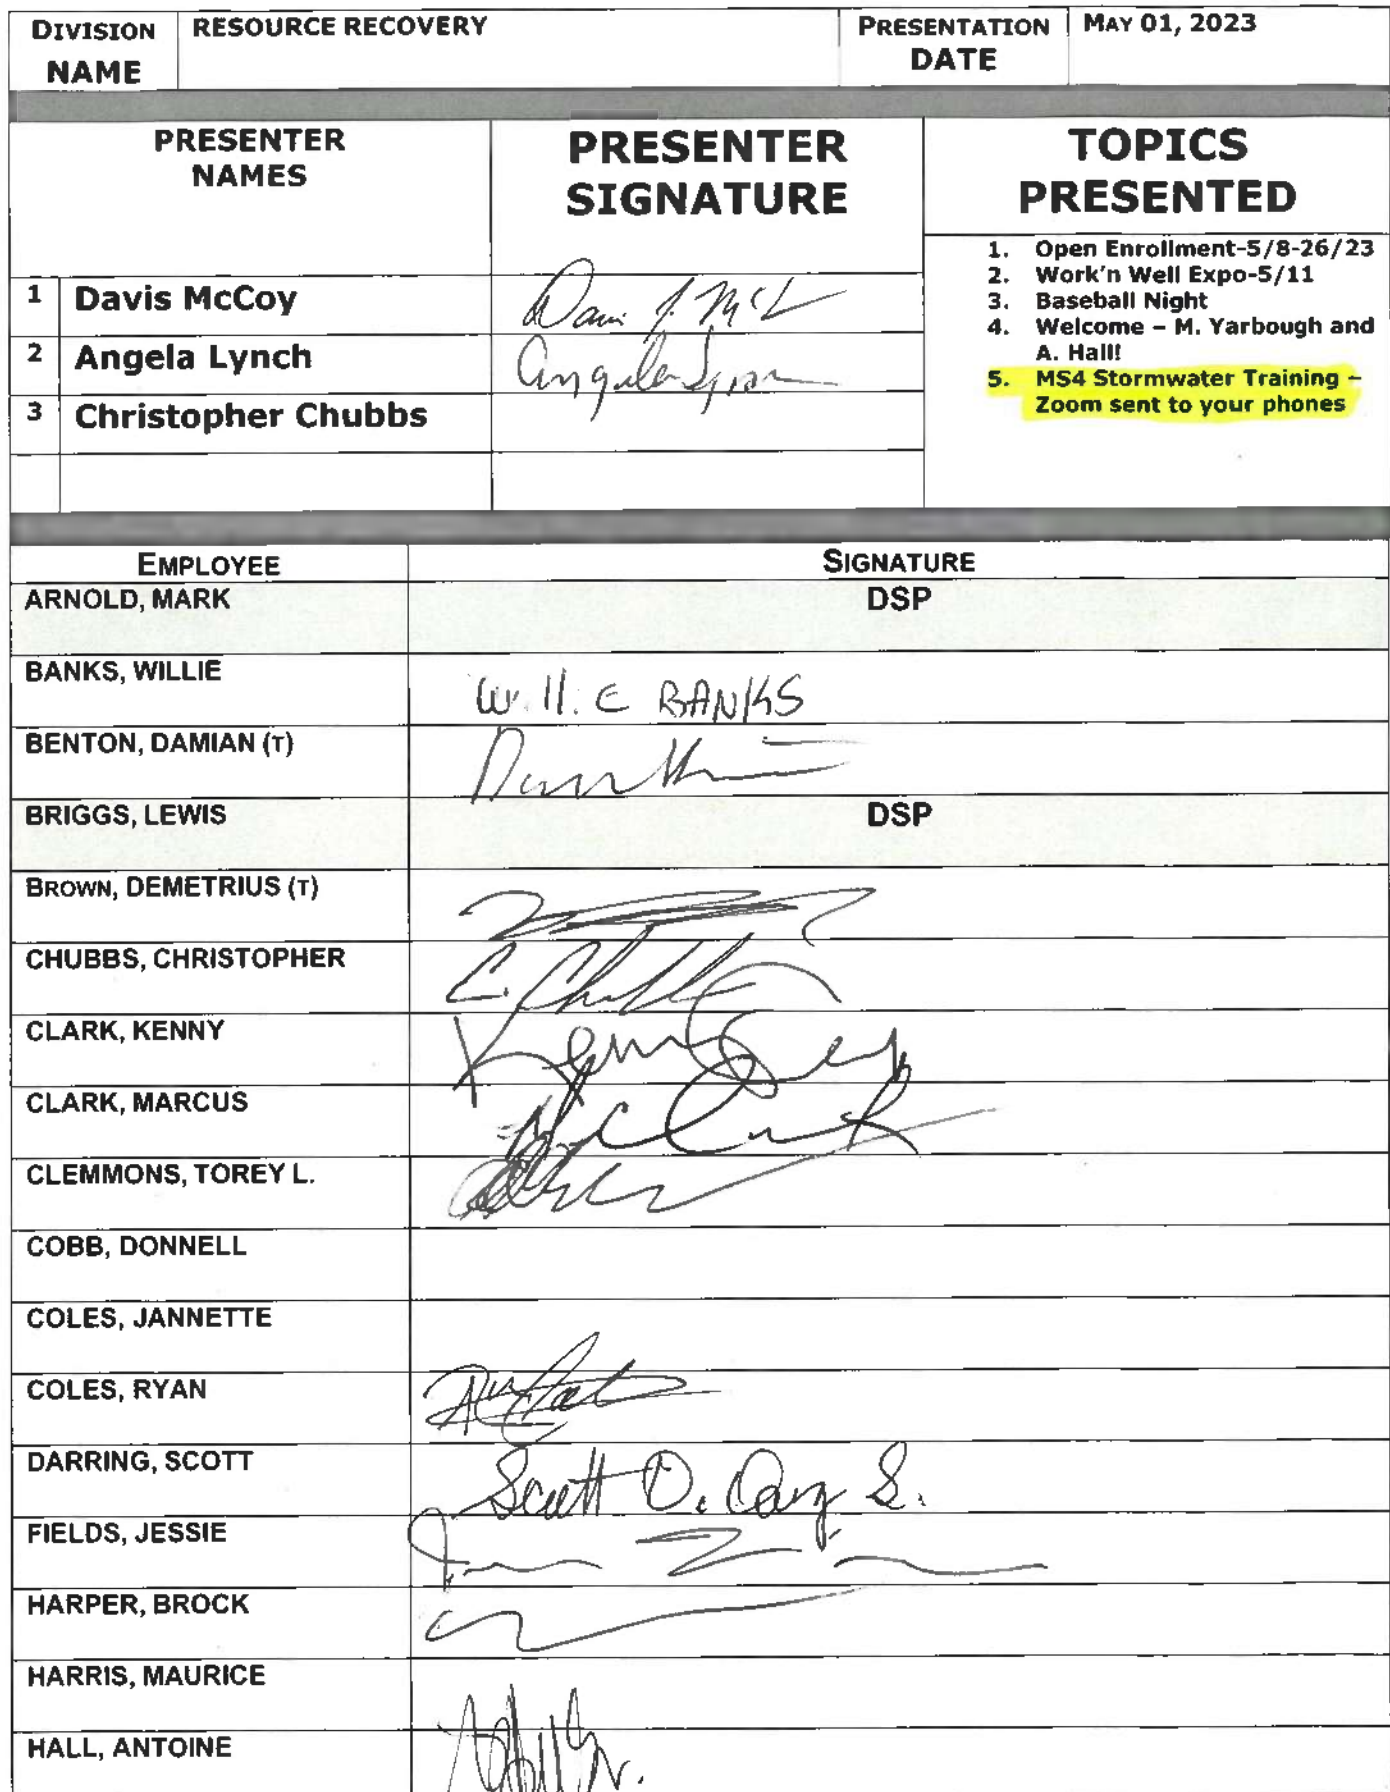 DIVISION NAME RESOURCE RECOVERY PRESENTATION DATE MAY 01, 2023
PRESENTER NAMES
PRESENTER SIGNATURE
TOPICS PRESENTED
1 Davis McCoy
2 Angela Lynch
3 Christopher Chubbs
1. Open Enrollment-5/8-26/23
2. Work'n Well Expo-5/11
3. Baseball Night
4. Welcome – M. Yarbough and
A. Hall!
5. MS4 Stormwater Training –
Zoom sent to your phones
EMPLOYEE SIGNATURE
ARNOLD, MARK DSP
BANKS, WILLIE WillIE BANKS
BENTON, DAMIAN (T)
BRIGGS, LEWIS DSP
BROWN, DEMETRIUS (T)
CHUBBS, CHRISTOPHER C. Chubbs
CLARK, KENNY
CLARK, MARCUS
CLEMMONS, TOREY L.
COBB, DONNELL
COLES, JANNETTE
COLES, RYAN
DARRING, SCOTT Scott D.
FIELDS, JESSIE
HARPER, BROCK
HARRIS, MAURICE
HALL, ANTOINE